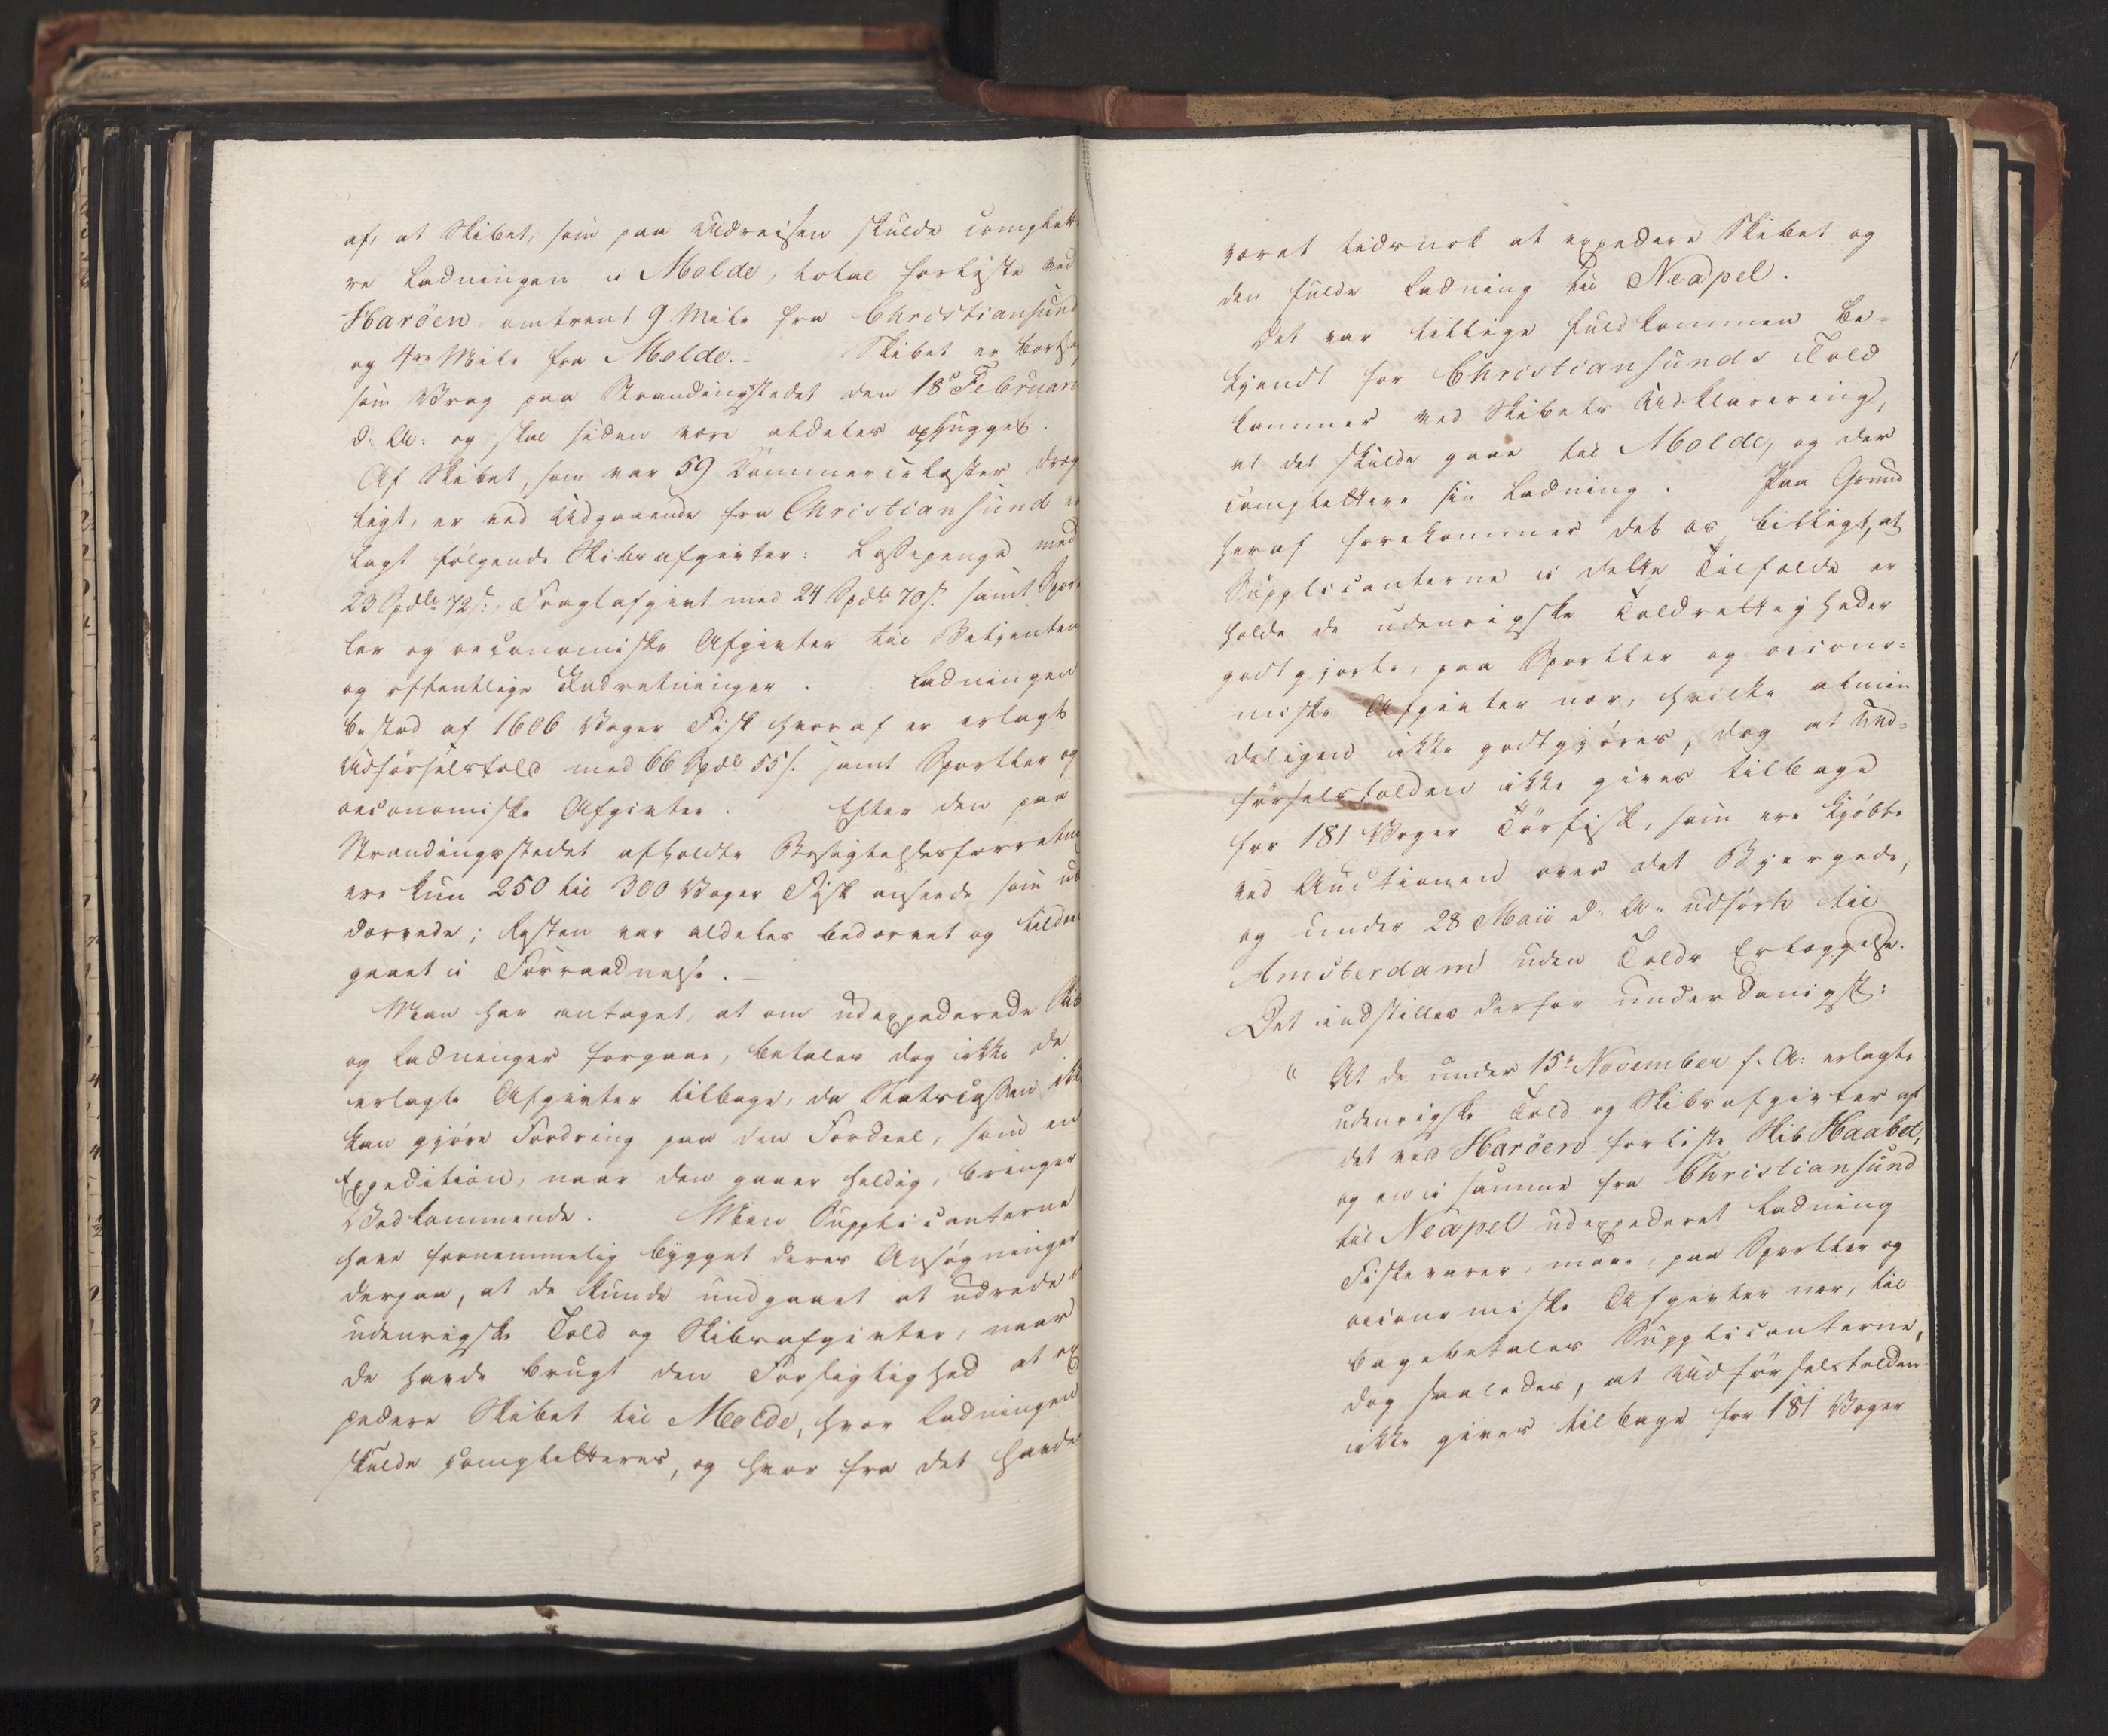 af, at Skibet, som paa Udreisen skulde complett
re Ladningen i Molde, total forliste ved
Haröen, omtrent 9 Mile fra Christiansund
og 4re Mile fra Molde. – Skibet er bortsolgt
som Vrag paa Strandingsstedet den 18de Februarii
d: A: og skal siden være aldeles ophugget.
Af Skibet, som var 59 Commerce Læster dræg
tigt, er ved Udgaaende fra Christiansund er
lagt følgende Skibsafgivter: Lastepenge med
23 Spdlr 72 s:, Fragtafgivt med 24 Spdlr 70 s. samt Sport
ler og oeconomiske Afgivter til Betjenten
og offentlige Indretninger. Ladningen
bestod af 1606 Voger Fisk hvoraf er erlagt
Udførselstold med 66 Spdlr 55 s. samt Sportler og
oeconomiske Afgivter. Efter den paa
Strandingsstedet afholdte Besigtelsesforretning
ere kun 250 til 300 Voger Fisk anseede som ube
dærvede; Resten var aldeles bedærvet og tildeels
gaaet i Forraadnelse. –
Man har antaget, at om udexpederede Skib
og Ladninger forgaae, betales dog ikke de
erlagte Afgivter tilbage, da Statscassen ikke
kan gjøre Fordring paa den Fordeel, som en
Expedition, naar den gaaer heldig, bringer
Vedkommende. Men Supplicanterne
have fornemmelig bygget deres Ansøgninger
derpaa, at de kunde undgaaet at udrede
udenrigske Told og Skibsafgivter, naar
de havde brugt den Forsigtighed at ex
pedere Skibet til Molde, hvor Ladningen
skulde completteres, og hvor fra det havde
været tidsnok at expedere Skibet og
den fulde Ladning til Neapel.
Det var tillige fuldkommen be-
kjendt for Christiansunds Told
kammer ved Skibets Udklarering,
at det skulde gaae til Molde, og der
complettere sin Ladning. Paa Grund
heraf forekommer det os billigt, at
Supplicanterne i dette Tilfælde er
holde de udenrigske Toldrettigheder
godtgjorte, paa Sportler og oicono-
miske Afgivter nær, hvilke almin
deligen ikke godtgjøres, dog at Ud-
førselstolden ikke gives tilbage
for 181 Voger Törfisk, som ere kjøbte
ved Auctionen over det Bjergede,
og under 28 Maii d: A: udførte til
Amsterdam uden Tolds Erlæggelse.
Det indstilles derfor underdanigst:
" At de under 15de November f. A: erlagte
udenrigske Told og Skibsafgivter af
det ved Haröen forliste Skib Haabet,
og en i samme fra Christiansund
til Neapel udexpederet Ladning
Fiskevarer, maae, paa Sportler og
oiconomiske Afgivter nær, til
bagebetales Supplicanterne,
dog saaledes, at Udførselstolden
ikke gives tilbage for 181 Voger